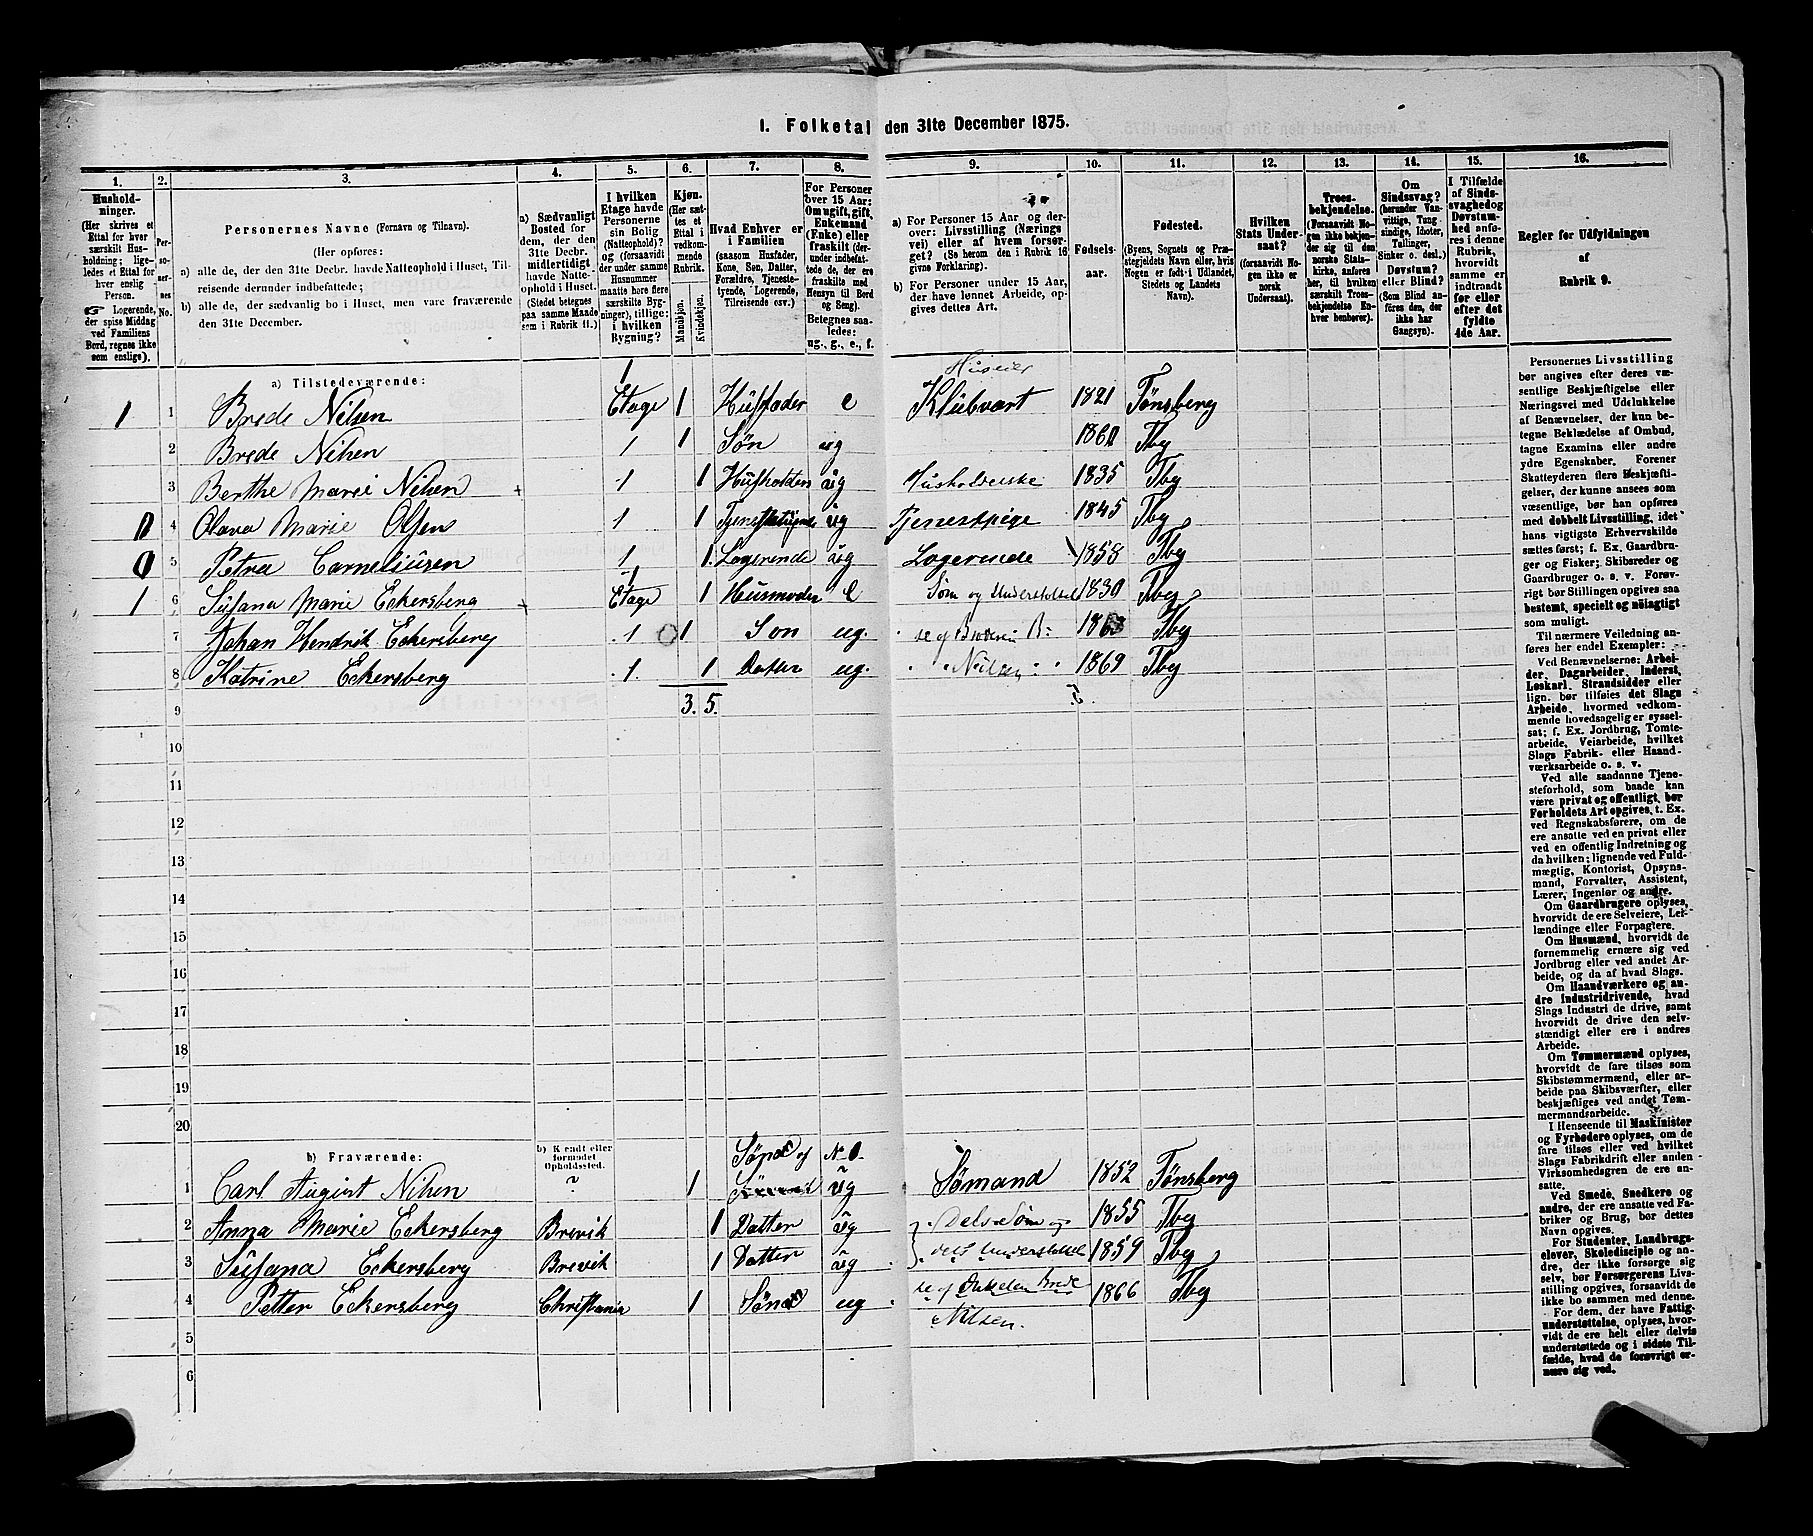 1. Folketal den 31te December 1875.
1. 2. 3. 4. 5. 6. 7. 8. 9. 10. 11. 12. 13. 14. 15. 16.
Hushold-
ninger.
(Her skrives et
Ettal for hver
særskilt Hus-
holdning; lige-
ledes et Ettal for
hver enslig
Person.
☞ Logerende,
der spise Middag
ved Familiens
Bord, regnes ikke
som enslige).
Per-
so-
ner-
nes
No.
Personernes Navne (Fornavn og Tilnavn).
(Her opføres:
a) alle de, der den 31te Decbr. havde Natteophold i Huset, Til-
reisende derunder indbefattede;
b) alle de, der sædvanlig bo i Huset, men vare fraværende
den 31te December.
a) Sædvanligt
Bosted for
dem, der den
31te Decbr.
midlertidigt
havde Natte-
ophold i Huset.
(Stedet betegnes
paa samme Maade
som i Rubrik 11.)
I hvilken
Etage havde
Personerne
sin Bolig
(Natteophold)?
og (forsaavidt
der under samme
Husnummer
maatte høre flere
særskilte Byg-
ninger), tillige:
i hvilken
Bygning?
Kjøn.
(Her sæt-
tes et
Ettal i
vedkom-
mende
Rubrik.
Mandkjøn.
Kvindekjøn.
Hvad Enhver er
i Familien
(saasom Husfader,
Kone, Søn, Datter,
Forældre, Tjeneste-
tyende, Logerende,
Tilreisende osv.)
For Personer
over 15 Aar:
Om ugift, gift,
Enkemand
(Enke) eller
fraskilt (der-
under indbefat-
tede de, der ere
fraskilte med
Hensyn til Bord
og Seng).
Betegnes saa-
ledes:
ug., g., e., f.
a) For Personer 15 Aar og der-
over: Livsstilling (Nærings
vei) eller af hvem forsør-
get? (Se herom den i Rubrik 16
givne Forklaring).
b) For Personer under 15 Aar,
der have lønnet Arbeide, op-
gives dettes Art.
Fødsels-
aar.
Fødested.
(Byens, Sognets og Præ-
stegjeldets Navn eller, hvis
Nogen er født i Udlandet,
Stedets og Landets
Navn).
Hvilken
Stats Under-
saat?
(forsaavidt No-
gen ikke er
norsk
Undersaat).
Troes-
bekjendelse.
(Forsaavidt No-
gen ikke bekjen-
der sig til den
norske Stats-
kirke, anføres
her, til hvilken
særskilt Troes-
bekjendelse En-
hver henhører).
Om
Sindssvag?
(herunder Van-
vittige, Tung-
sindige, Idioter,
Tullinger,
Sinker o. desl.)
Døvstum?
eller Blind?
(Som Blind an-
føres den, der
ikke har
Gangsyn).
I Tilfælde
af Sinds-
svaghed og
Døvstum-
hed anfø-
res i denne
Rubrik,
hvorvidt
samme er
indtraadt
før eller
efter det
fyldte
4de Aar.
Regler for Udfyldningen
af
Rubrik 9.
a) Tilstedeværende:
1 1 Brede Nilsen 1 Etage 1 Husfader e Huseier Klubvært 1821 Tønsberg
2 Brede Nilsen 1 1 Søn ug 1860 Tbg
3 Berthe Marie Nilsen + 1 1 Husholders ug Husholderske 1835 Tbg
4 Olava Marie Olsen 1 1 ug Tjenestpige 1845 Tbg
5 Petra Corneliusen 1 1 Logerende ug Logerende 1858 Tbg
1 6 Susana Marie Eckersberg + 1 Etage 1 Husmoder e Søm og Understøttet 1830 Tbg
7 Johan Hendrik Eckersberg 1 1 Søn ug. af Broderen B: 1863 Tbg
8 Katrine Eckersberg 1 1 Datter ug. " " Nilsen " 1869 Tbg
9 3. 5.
10
11
12
13
14
15
16
17
18
19
20
b) Fraværende:
b) Kjendt eller
formodet
Opholdssted.
1 Carl August Nilsen ? 1 Søn af N. 1. ug Sømand 1852 Tønsberg
2 Anna Marie Eckersberg Brevik 1 Datter ug Delvis Søm og 1855 Tbg
3 Susana Eckersberg Brevik 1 Datter ug dels Understøttet 1859 Tbg
4 Petter Eckersberg Christiania 1 Søn ug af Onkelen Brede 1866 Tbg
Nilsen.
5
6
Personernes Livsstilling
bør angives efter deres væ-
sentlige Beskjæftigelse eller
Næringsvei med Udelukkelse
af Benævnelser, der kun be-
tegne Beklædelse af Ombud,
tagne Examina eller andre
ydre Egenskaber. Forener
Skatteyderen flere Beskjæfti-
gelser, der kunne ansees som
væsentlige, bør han opføres
med dobbelt Livsstilling, idet
hans vigtigste Erhvervskilde
sættes først; f. Ex. Gaardbru-
ger og Fisker; Skibsreder og
Gaardbruger o. s. v. Forøv-
rigt bør Stillingen opgives saa
bestemt, specielt og nøiagtigt
som muligt.
Til nærmere Veiledning an-
føres her endel Exempler:
Ved Benævnelserne: Arbei-
der, Dagarbeider, Inderst,
Løskarl, Strandsidder eller
lign. bør tilføies det Slags
Arbeide, hvormed vedkom-
mende hovedsagelig er syssel-
sat; f. Ex. Jordbrug, Tomte-
arbeide, Veiarbeide, hvilket
Slags Fabrik- eller Haand-
værksarbeide o. s. v.
Ved alle saadanne Tjene-
steforhold, som baade kan
være privat og offentligt, bør
Forholdets Art opgives, t. Ex.
ved Regnskabsførere, om de
ere ansatte ved en privat eller
ved en offentlig Indretning og
da hvilken; lignende ved Fuld-
mægtig, Kontorist, Opsyns-
mand, Forvalter, Assistent,
Lærer, Ingeniør og andre.
Om Gaardbrugere oplyses,
hvorvidt de ere Selveiere, Lei-
lændinge eller Forpagtere.
Om Husmænd, hvorvidt de
fornemmelig ernære sig ved
Jordbrug eller ved andet Ar-
beide, og da af hvad Slags.
Om Haandværkere og an-
dre Industridrivende, hvad
Slags Industri de drive, samt
hvorvidt de drive den selv-
stændigt eller ere i andres
Arbeide.
Om Tømmermænd oplyses,
hvorvidt de fare tilsøs som
Skibstømmermænd, eller ar-
beide paa Skibsværfter, eller
beskjæftiges ved andet Tøm-
mermandsarbeide.
I Henseende til Maskinister
og Fyrbødere oplyses, om de
fare tilsøs eller ved hvilket
Slags Fabrikdrift eller anden
Virksomhedsgren de ere an-
satte.
Ved Smede, Snedkere og
andre, der ere ansatte ved Fa-
briker og Brug, bør dettes
Navn opgives.
For Studenter, Landbrugs-
elever, Skoledisciple og an-
dre, der ikke forsørge sig
selv, bør Forsørgerens Livs-
stilling opgives, forsaavidt de
ikke bo sammen med denne.
For dem, der have Fattig-
understøttelse, oplyses, hvor-
vidt de ere helt eller delvis
understøttede og i sidste Til-
fælde, hvad de forøvrigt er-
nære sig ved.